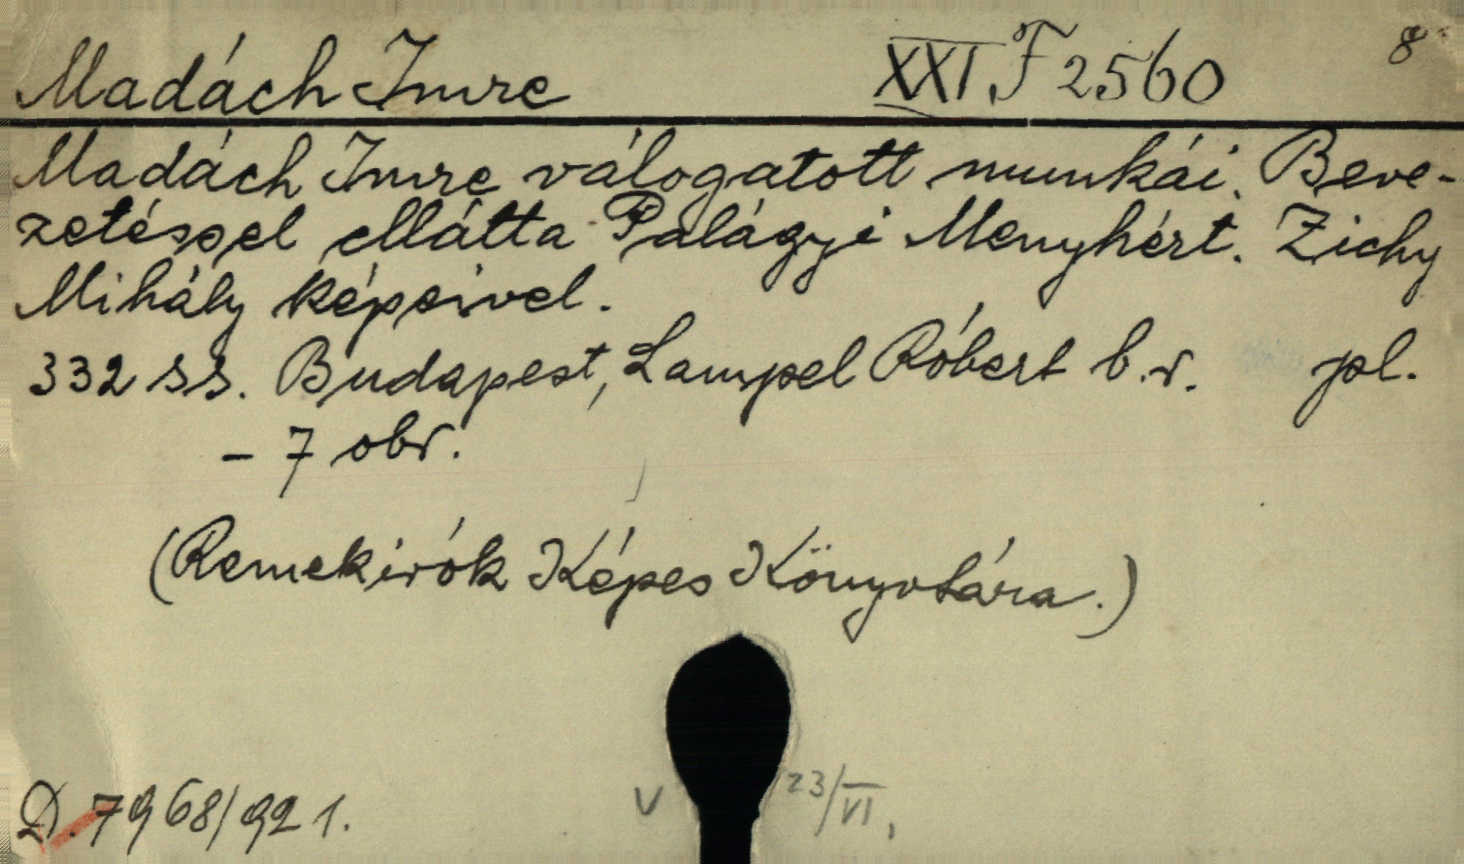 Madách Imre XXI F 2560 8°
Madách Imre válogatott munkái. Beve-
zetéssel ellátta Palágyi Menyhért. Zichy
Mihály képeivel.
332 ss. Budapest, Lampel Róbert b.r. pl.
– 7 obr.
(Remekirók Képes Könyvtára.)
V 23/VI.
D. 7968/921.